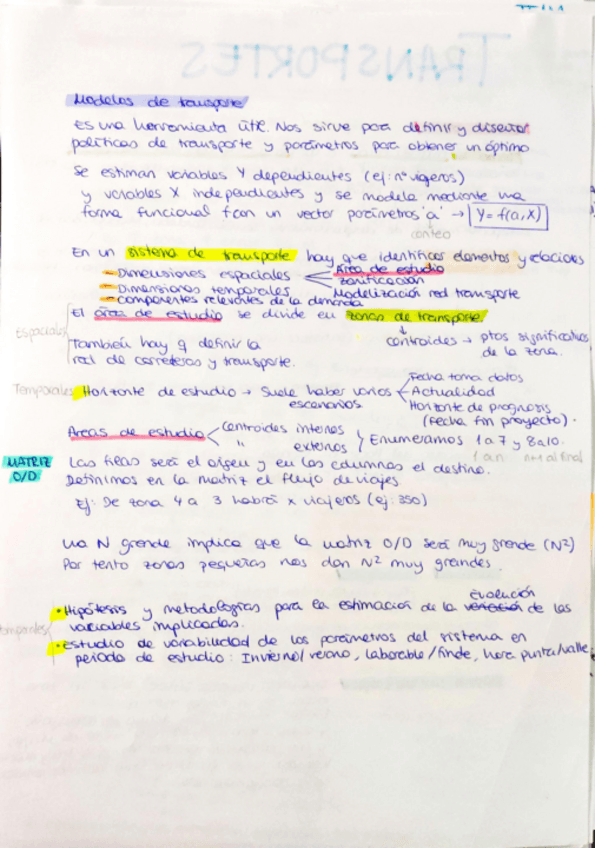 TRANSPORTES
Modelos de transporte
Es una herramienta útil. Nos sirve para definir y diseñar
políticas de transporte y parámetros para obtener un óptimo
Se estiman variables Y dependientes (ej: nº viajeros)
y variables X independientes y se modela mediante una
forma funcional f con un vector parámetros 'a' → Y = f(a,X)
conteo
En un sistema de transporte hay que identificar elementos y relaciones
- Dimensiones espaciales
Área de estudio
zonificación
Modelización red transporte
- Dimensiones temporales
- Componentes relevantes de la demanda
Espaciales
El área de estudio se divide en zonas de transporte.
centroides → ptos significativos
de la zona.
También hay q definir la
red de carreteras y transporte.
Temporales
Horizonte de estudio → Suele haber varios
escenarios
Fecha toma datos
Actualidad
Horizonte de prognosis
(fecha fin proyecto).
Áreas de estudio
Centroides internos
" externos
Enumeramos 1 a 7 y 8 a 10.
1 a n n+1 al final
MATRIZ
O/D
Las filas será el origen y en las columnas el destino.
Definimos en la matriz el flujo de viajes
Ej: De zona 4 a 3 habrá x viajeros (ej: 350)
Una N grande implica que la matriz O/D será muy grande (N²)
Por tanto zonas pequeñas nos dan N² muy grandes.
evolución
• Hipótesis y metodologías para la estimación de la variación de las
variables implicadas.
• Estudio de variabilidad de los parámetros del sistema en
periodo de estudio: Invierno/verano, laborable/finde, hora punta/valle